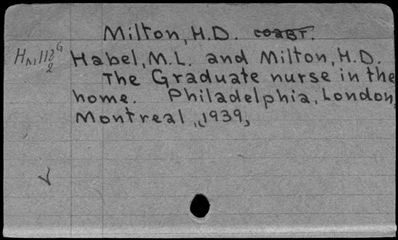 Milton, H.D. coabt.
Habel, M.L. and Milton, H.D.
The Graduate nurse in the
home. Philadelphia, London,
Montreal, 1939,